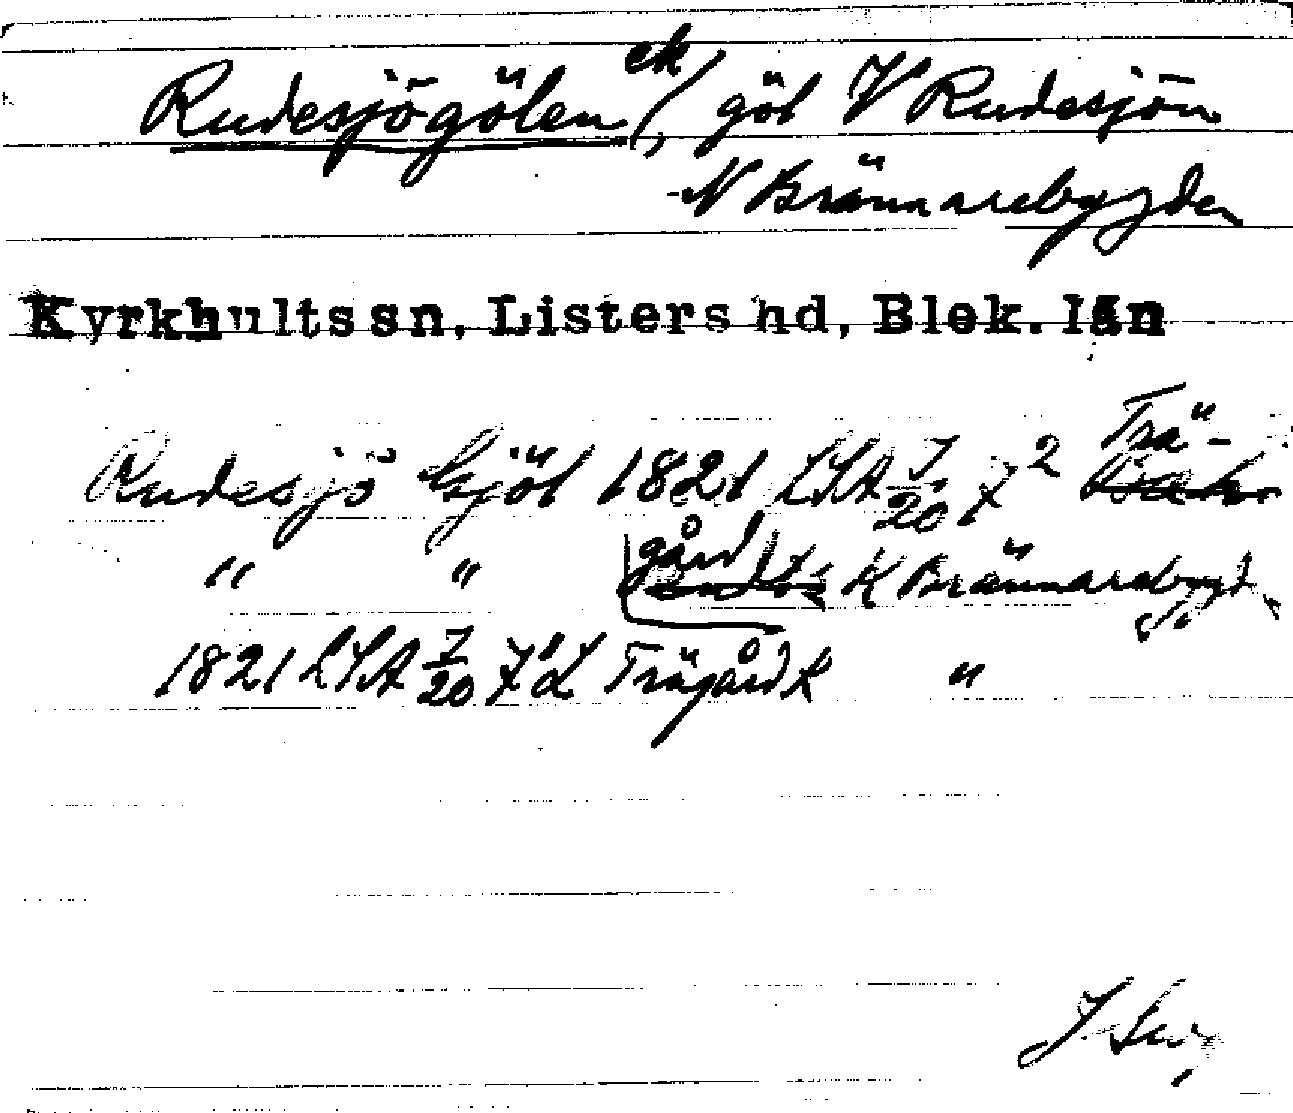 Rudesjögölen ek/, göl V Rudesjön
N Brännarebygden
Kyrkhults sn, Listers hd, Blek. län
Rudesjö Gjöl 1821 LSA 7/20 Trä-
" " gård K Brännarebygd
1821 LSA 7/20 Trägård K "